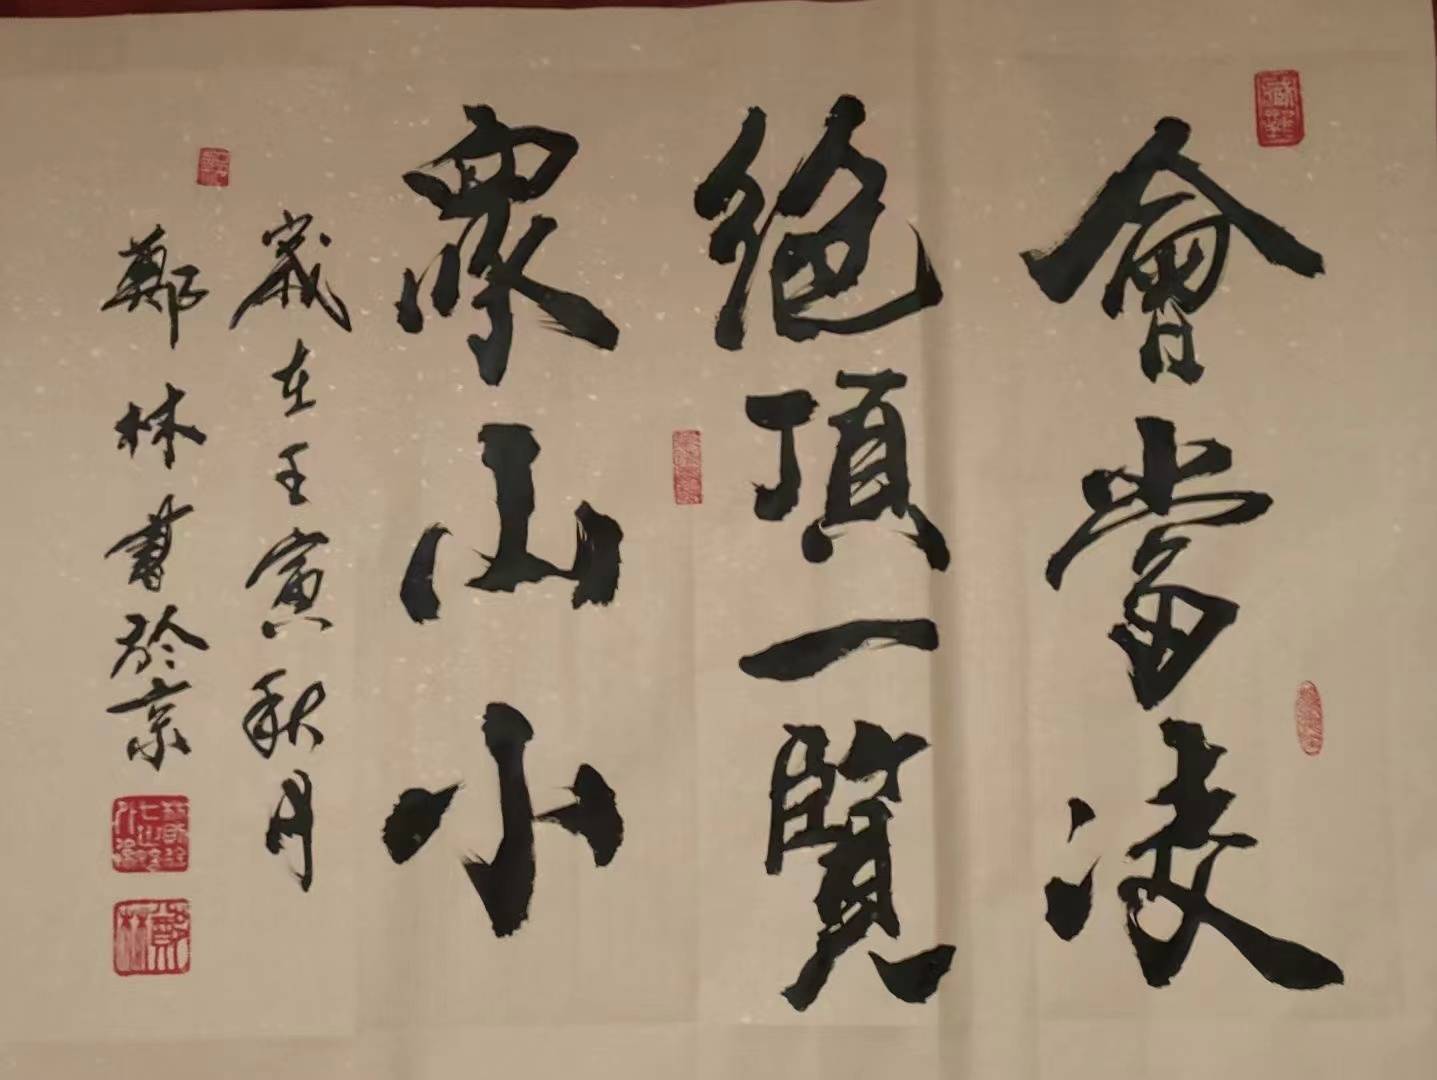 會當凌
絕頂一覽
眾山小
歲在壬寅秋月
鄭林書於京
鄭林